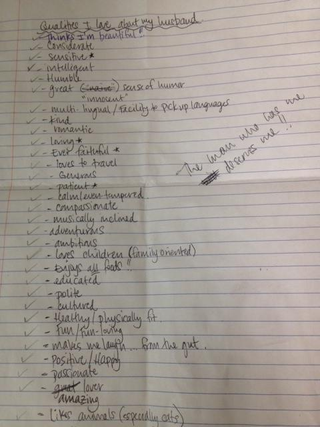 Qualities I love about my husband
- Thinks I'm beautiful*
- Considerate
- sensitive*
- intelligent
- Humble
- great sense of humor
"innocent"
- multi-lingual/facility to pick up languages
- kind
- romantic
- loving*
- Ever faithful*
- loves to travel
- Generous
- patient*
- calm/even-tempered
- compassionate
- musically inclined
- adventurous
- ambitious
- loves children (family oriented)
- Enjoys all foods!!
- educated
- polite
- cultured
- Healthy/physically fit
- Fun/fun-loving
- makes me laugh... from the gut.
- Positive/Happy
- passionate
- great lover
amazing
- likes animals (especially cats)
The man who was me
deserves me!!